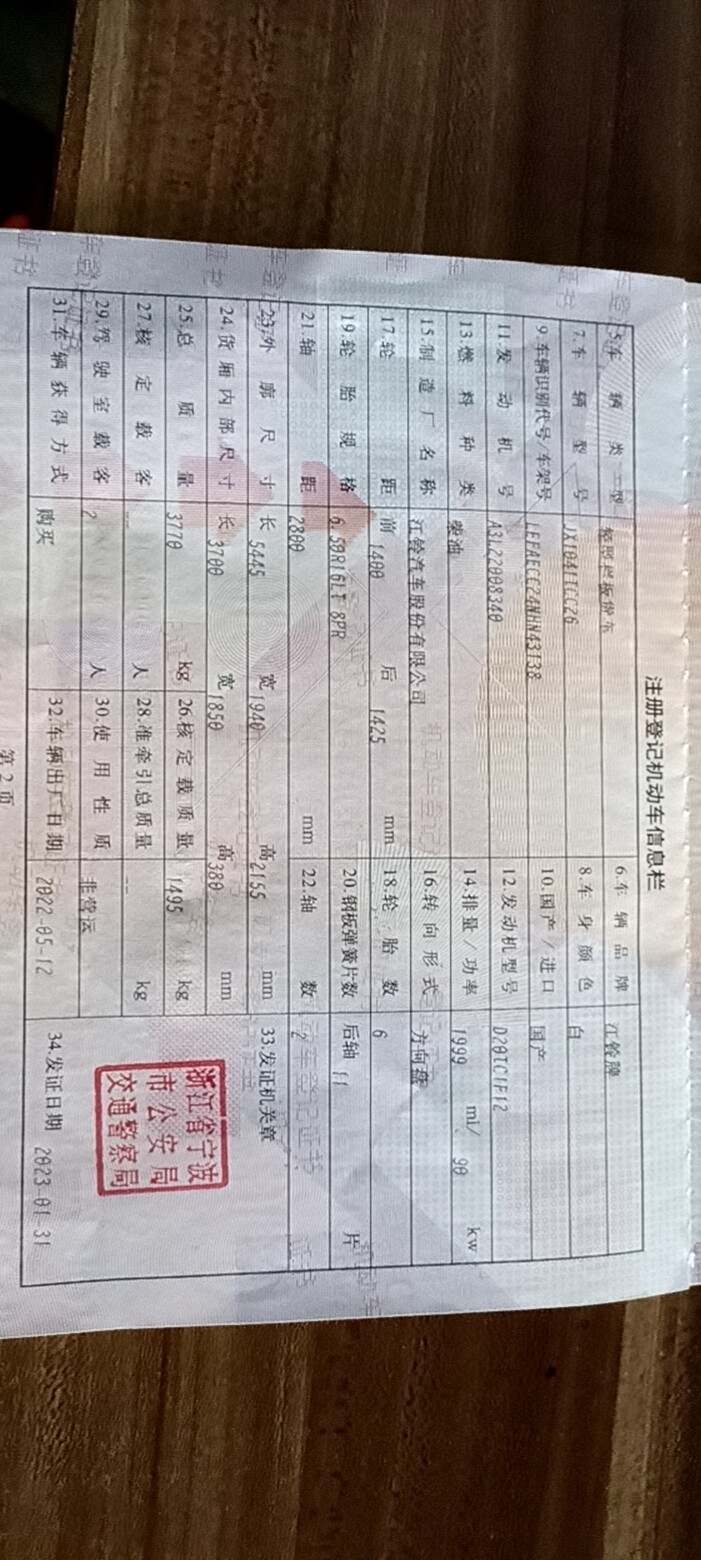 注册登记机动车信息栏
5.车辆类型 轻型栏板货车 6.车辆品牌 江铃牌
7.车辆型号 JX1041TCC26 8.车身颜色 白
9.车辆识别代号/车架号 LEFAECC24NHN43138 10.国产/进口 国产
11.发动机号 A3L22008340 12.发动机型号 D20TCIF12
13.燃料种类 柴油 14.排量/功率 1999 ml/ 90 kw
15.制造厂名称 江铃汽车股份有限公司 16.转向形式 方向盘
17.轮距 前 1400 后 1425 mm 18.轮胎数 6
19.轮胎规格 6.50R16LT 8PR 20.钢板弹簧片数 后轴 11 片
21.轴距 2800 mm 22.轴数 2
23.外廓尺寸 长 5445 宽 1940 高 2155 mm 33.发证机关章
24.货厢内部尺寸 长 3700 宽 1850 高 380 mm
25.总质量 3770 kg 26.核定载质量 1495 kg
27.核定载客 -- 人 28.准牵引总质量 -- kg
29.驾驶室载客 2 人 30.使用性质 非营运
31.车辆获得方式 购买 32.车辆出厂日期 2022-05-12 34.发证日期 2023-01-31
浙江省宁波
市公安局
交通警察局
第 2 页